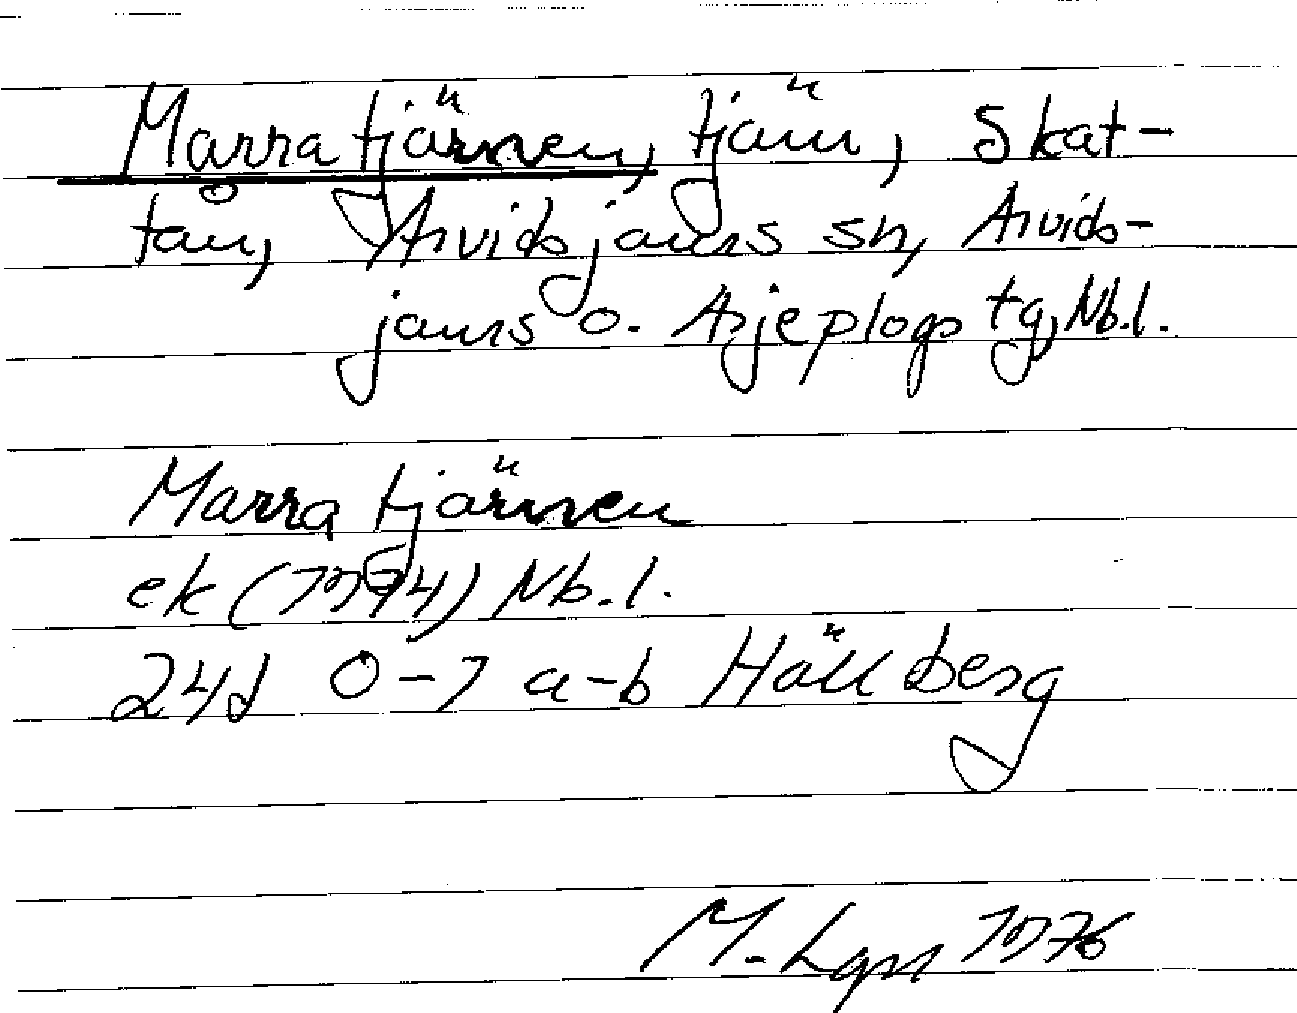 Marratjärnen, tjärn, Skat-
tån, Arvidsjaurs sn, Arvids-
jaurs o. Arjeplogs tg, Nb.l.
Marratjärnen
ek (1974) Nb.l.
24J 0-1 a-b Hällberg
M. Lgn 1976